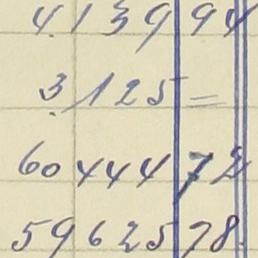 4.139 94
3.125 =
60444 72
59625 78.